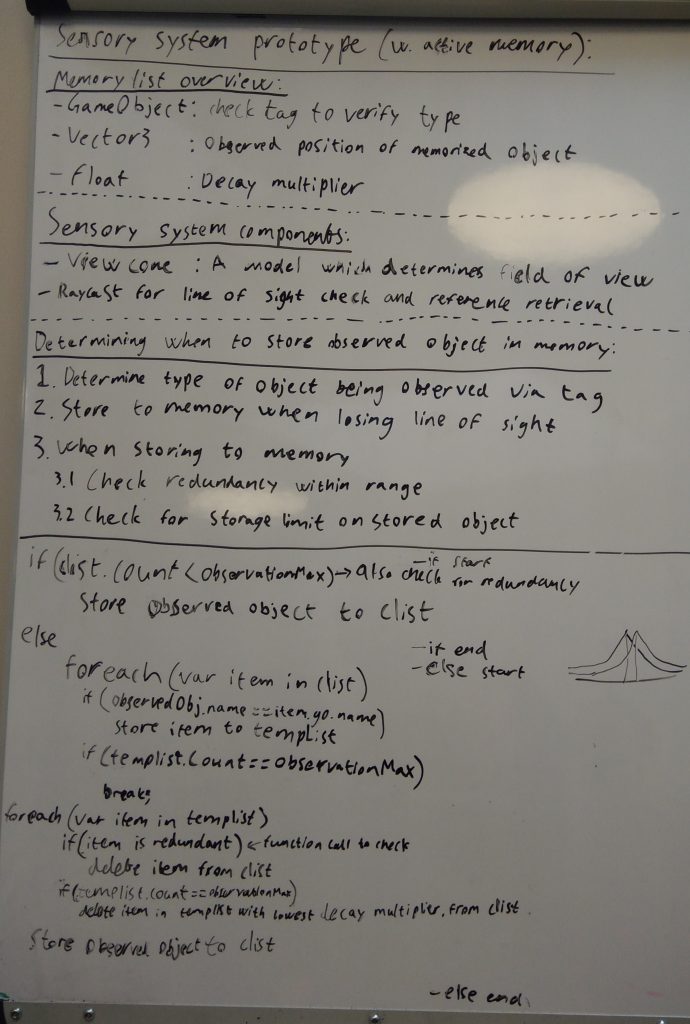 Sensory system prototype (w. active memory):
Memory list overview:
- GameObject: check tag to verify type
- Vector3 : Observed position of memorized object
- Float : Decay multiplier
Sensory system components:
- View cone : A model which determines field of view
- Raycast for line of sight check and reference retrieval
Determining when to store observed object in memory:
1. Determine type of object being observed via tag
2. Store to memory when losing line of sight
3. When storing to memory
3.1 Check redundancy within range
3.2 Check for storage limit on stored object
- if start
if (clist.Count < observationMax) → also check for redundancy
Store observed object to clist
else
- if end
- else start
foreach (var item in clist)
if (observedObj.name == item.go.name)
store item to templist
if (templist.Count == observationMax)
break;
foreach (var item in templist)
if (item is redundant) ← function call to check
delete item from clist
if (templist.count == observationMax)
delete item in templist with lowest decay multiplier, from clist.
Store observed object to clist
- else end